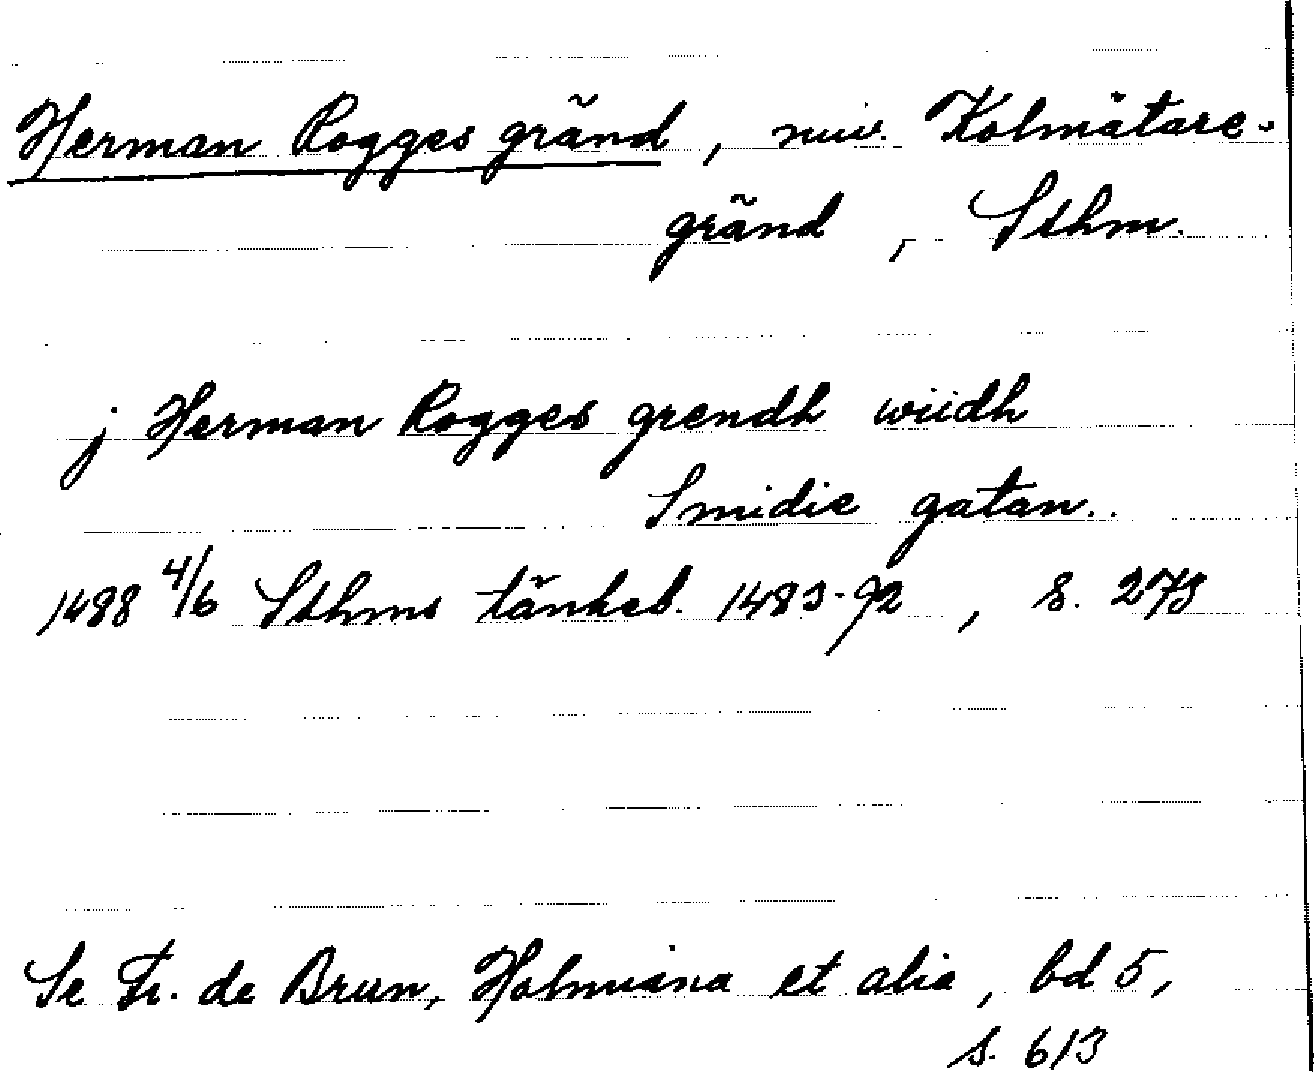 Herman Rogges gränd, nuv. Kolmätare-
gränd, Sthm.
j Herman Rogges grendh wiidh
Smidie gatan..
1488 4/6 Sthms tänkeb. 1483-92, s. 273
Se Fr. de Brun, Holmiana et alia, bd 5,
s. 613